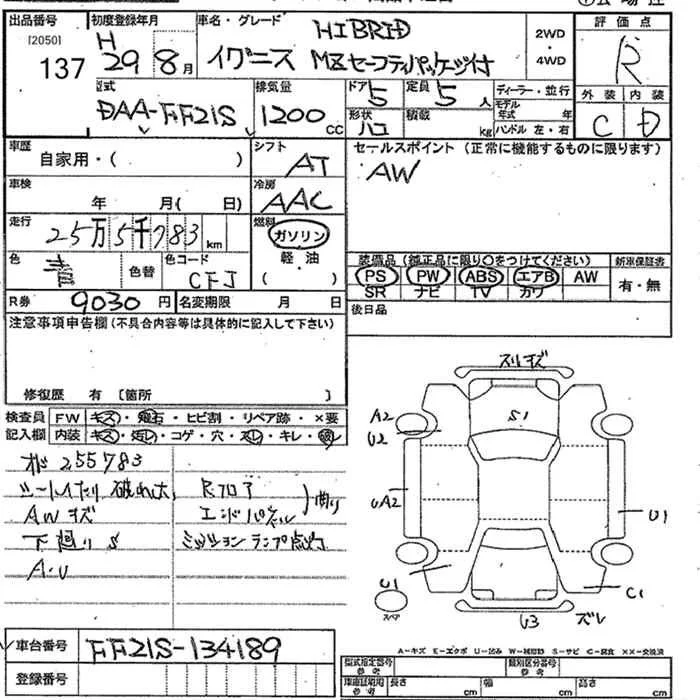 出品番号 [2050] 137
初度登録年月 H 29 8月
車名・グレード HIBRID
イグニス MZセーフティパッケージ付
2WD・4WD
評価点 R
型式 DAA-FF21S
排気量 1200 CC
ドア 5 形状 ハコ
定員 5 人 積載 kg
ディーラー・並行
モデル年式 年
ハンドル 左・右
外装 C 内装 D
車歴 自家用・( )
シフト AT
セールスポイント (正常に機能するものに限ります)
AW
車検 年 月( 日)
冷房 AAC
走行 25万5千783 km
燃料 ガソリン 軽・油 ( )
色 青 色替 色コード CFJ
装備品(純正品に限り○をつけてください)
PS PW ABS エアB AW
SR ナビ TV カワ
新車保証書 有・無
R券 9030円 名変期限 月 日
後日品
注意事項申告欄(不具合内容等は具体的に記入して下さい)
修復歴 有 [箇所 ]
検査員記入欄
FW キズ・飛石・ヒビ割・リペア跡・×要
内装 キズ・汚レ・コゲ・穴・スレ・キレ・破レ
255783
AW キズ
下廻り S
A・U
Rフロア
エンドパネル
曲り
ミッションランプ点灯
スリキズ
S1
A2
U2
UA2
U1
U1
C1
U3 ズレ
スペア
A-キズ E-エクボ U-凹み W-補修跡 S-サビ C-腐食 ××-交換済
車台番号 FF21S-134189
登録番号
型式指定番号 参考
類別区分番号 参考
車庫証明用 参考 長さ cm 幅 cm 高さ cm